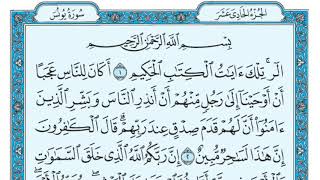 سُورَةُ يُونُسَ
الجُزْءُ الحَادِي عَشَرَ
بِسْمِ اللَّهِ الرَّحْمَٰنِ الرَّحِيمِ
الٓر ۚ تِلْكَ ءَايَٰتُ ٱلْكِتَٰبِ ٱلْحَكِيمِ ١ أَكَانَ لِلنَّاسِ عَجَبًا
أَنْ أَوْحَيْنَآ إِلَىٰ رَجُلٍ مِّنْهُمْ أَنْ أَنذِرِ ٱلنَّاسَ وَبَشِّرِ ٱلَّذِينَ
ءَامَنُوٓا۟ أَنَّ لَهُمْ قَدَمَ صِدْقٍ عِندَ رَبِّهِمْ ۗ قَالَ ٱلْكَٰفِرُونَ
إِنَّ هَٰذَا لَسَٰحِرٌ مُّبِينٌ ٢ إِنَّ رَبَّكُمُ ٱللَّهُ ٱلَّذِى خَلَقَ ٱلسَّمَٰوَٰتِ